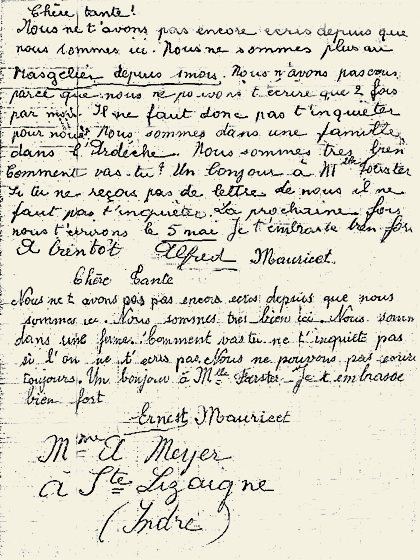 Chère tante!
Nous ne t'avons pas encore ecris depuis que
nous sommes ici. Nous ne sommes plus au
Masgelier depuis 1 mois. Nous n'avons pas
parce que nous ne pouvons t'ecrire que 2 fois
par mois. Il ne faut donc pas t'inquiéter
pour nous. Nous sommes dans une famille
dans l'Ardèche. Nous sommes très bien
Comment vas-tu? Un bonjour à Mlle
Si tu ne reçois pas de lettre de nous il ne
faut pas t'inquiéter. La prochaine fois
nous t'ecrirons le 5 mai Je t'embrasse bien fort
A bientôt Alfred Mauricet.
Chère Tante
Nous ne t avons pas pas encore ecris depuis que nous
sommes ici. Nous sommes très bien ici. Nous somm
dans une ferme. Comment vas tu ne t'inquiète pas
si l'on ne t'ecris pas. Nous ne pouvons pas ecrire
toujours. Un bonjour à Mlle Je t embrasse
bien fort
Ernest Mauricet
Mme A Meyer
à Ste Lizaigne
(Indre)